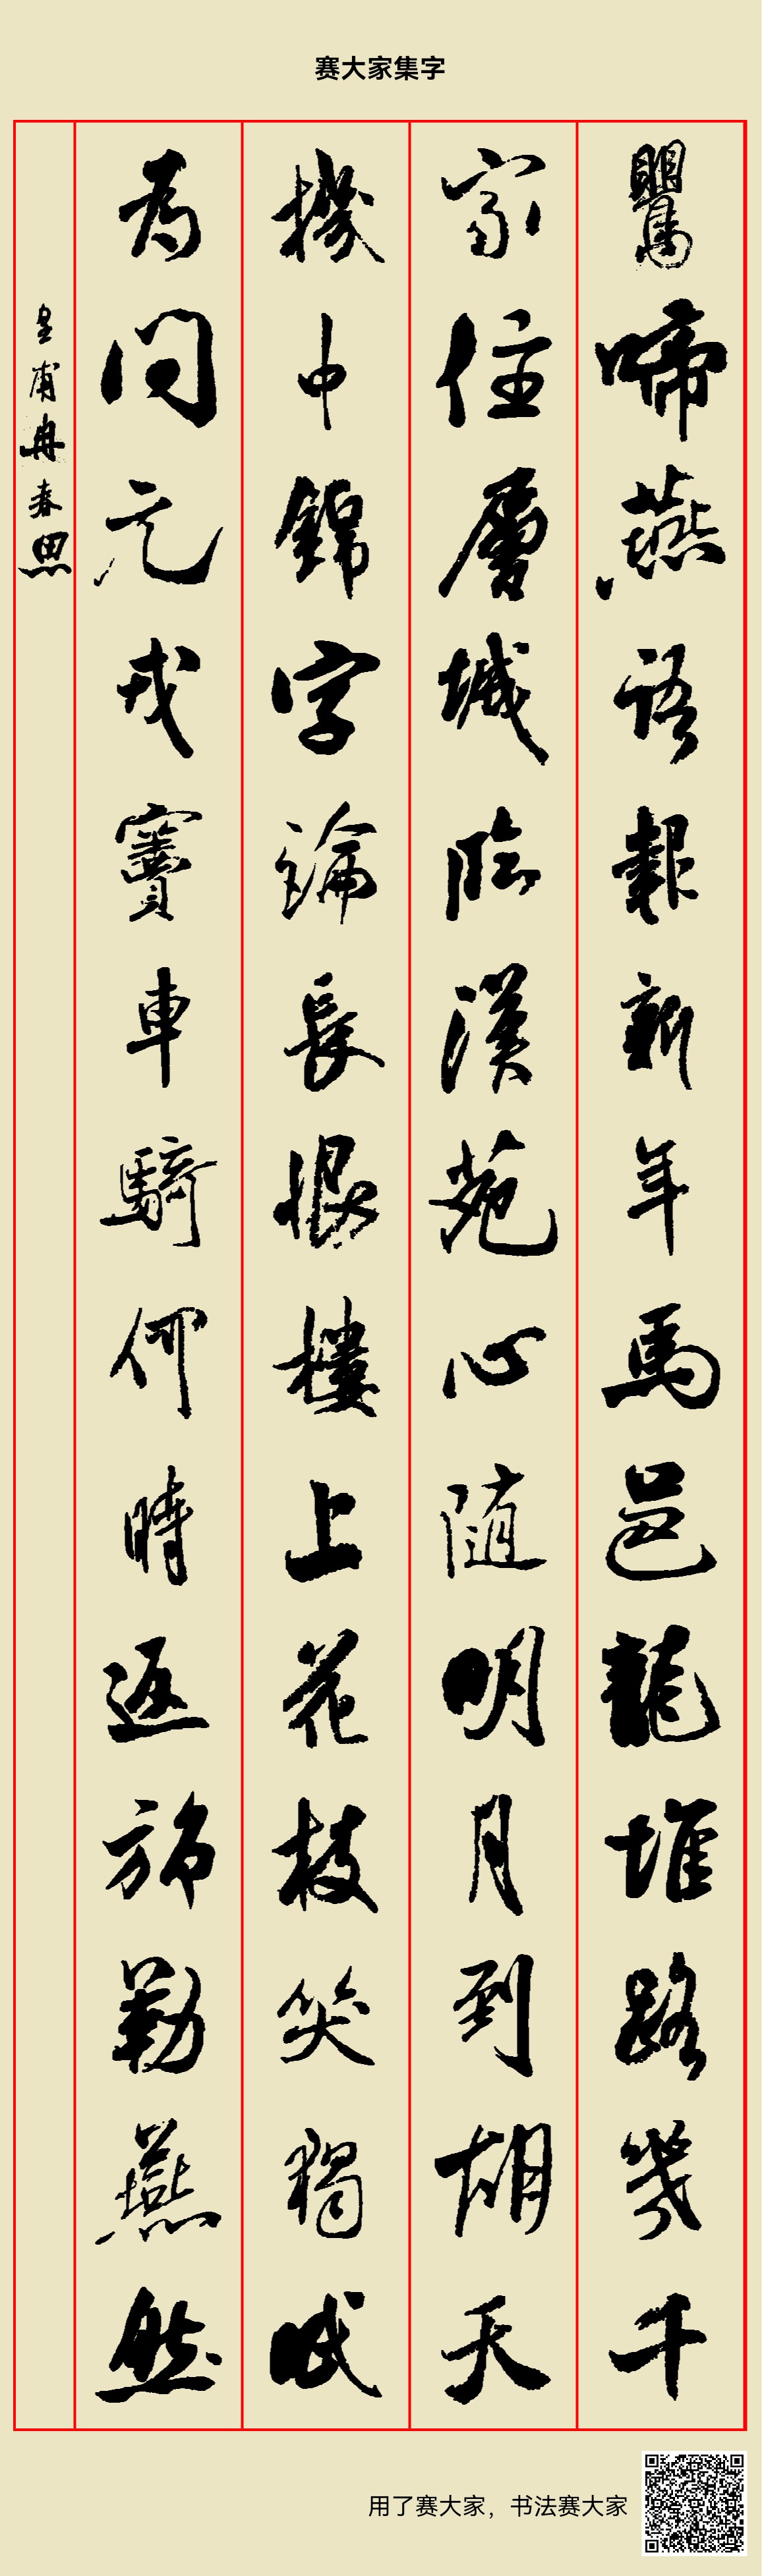 赛大家集字
鸎啼燕語報新年馬邑龍堆路幾千
家住層城臨漢苑心随明月到胡天
機中錦字論長恨樓上花枝笑獨眠
為問元戎竇車騎何時返旆勒燕然
皇甫冉春思
用了赛大家，书法赛大家